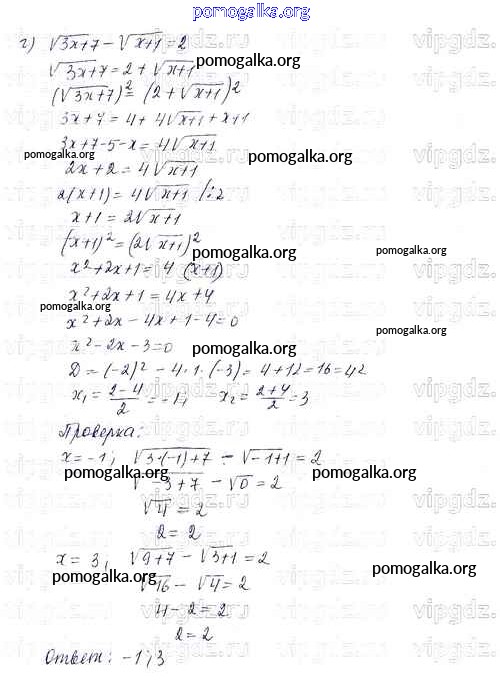 pomogalka.org
г) √(3x+7) − √(x+1) = 2
√(3x+7) = 2 + √(x+1)
pomogalka.org
(√(3x+7))² = (2 + √(x+1))²
3x+7 = 4 + 4√(x+1) + x+1
3x+7−5−x = 4√(x+1)
pomogalka.org pomogalka.org
2x+2 = 4√(x+1)
2(x+1) = 4√(x+1) /:2
x+1 = 2√(x+1)
(x+1)² = (2√(x+1))²
pomogalka.org pomogalka.org
x²+2x+1 = 4 (x+1)
x²+2x+1 = 4x+4
x²+2x−4x+1−4=0
pomogalka.org
x²−2x−3=0
pomogalka.org
D = (−2)² − 4·1·(−3) = 4+12=16=4²
x₁ = (2−4)/2 = −1; x₂ = (2+4)/2 = 3
pomogalka.org
Проверка:
x=−1; √(3·(−1)+7) − √(−1+1) = 2
pomogalka.org pomogalka.org
√(−3+7) − √0 = 2
√4 = 2
2 = 2
x = 3; √(9+7) − √(3+1) = 2
pomogalka.org pomogalka.org
√16 − √4 = 2
4−2 = 2
2 = 2
Ответ: −1; 3